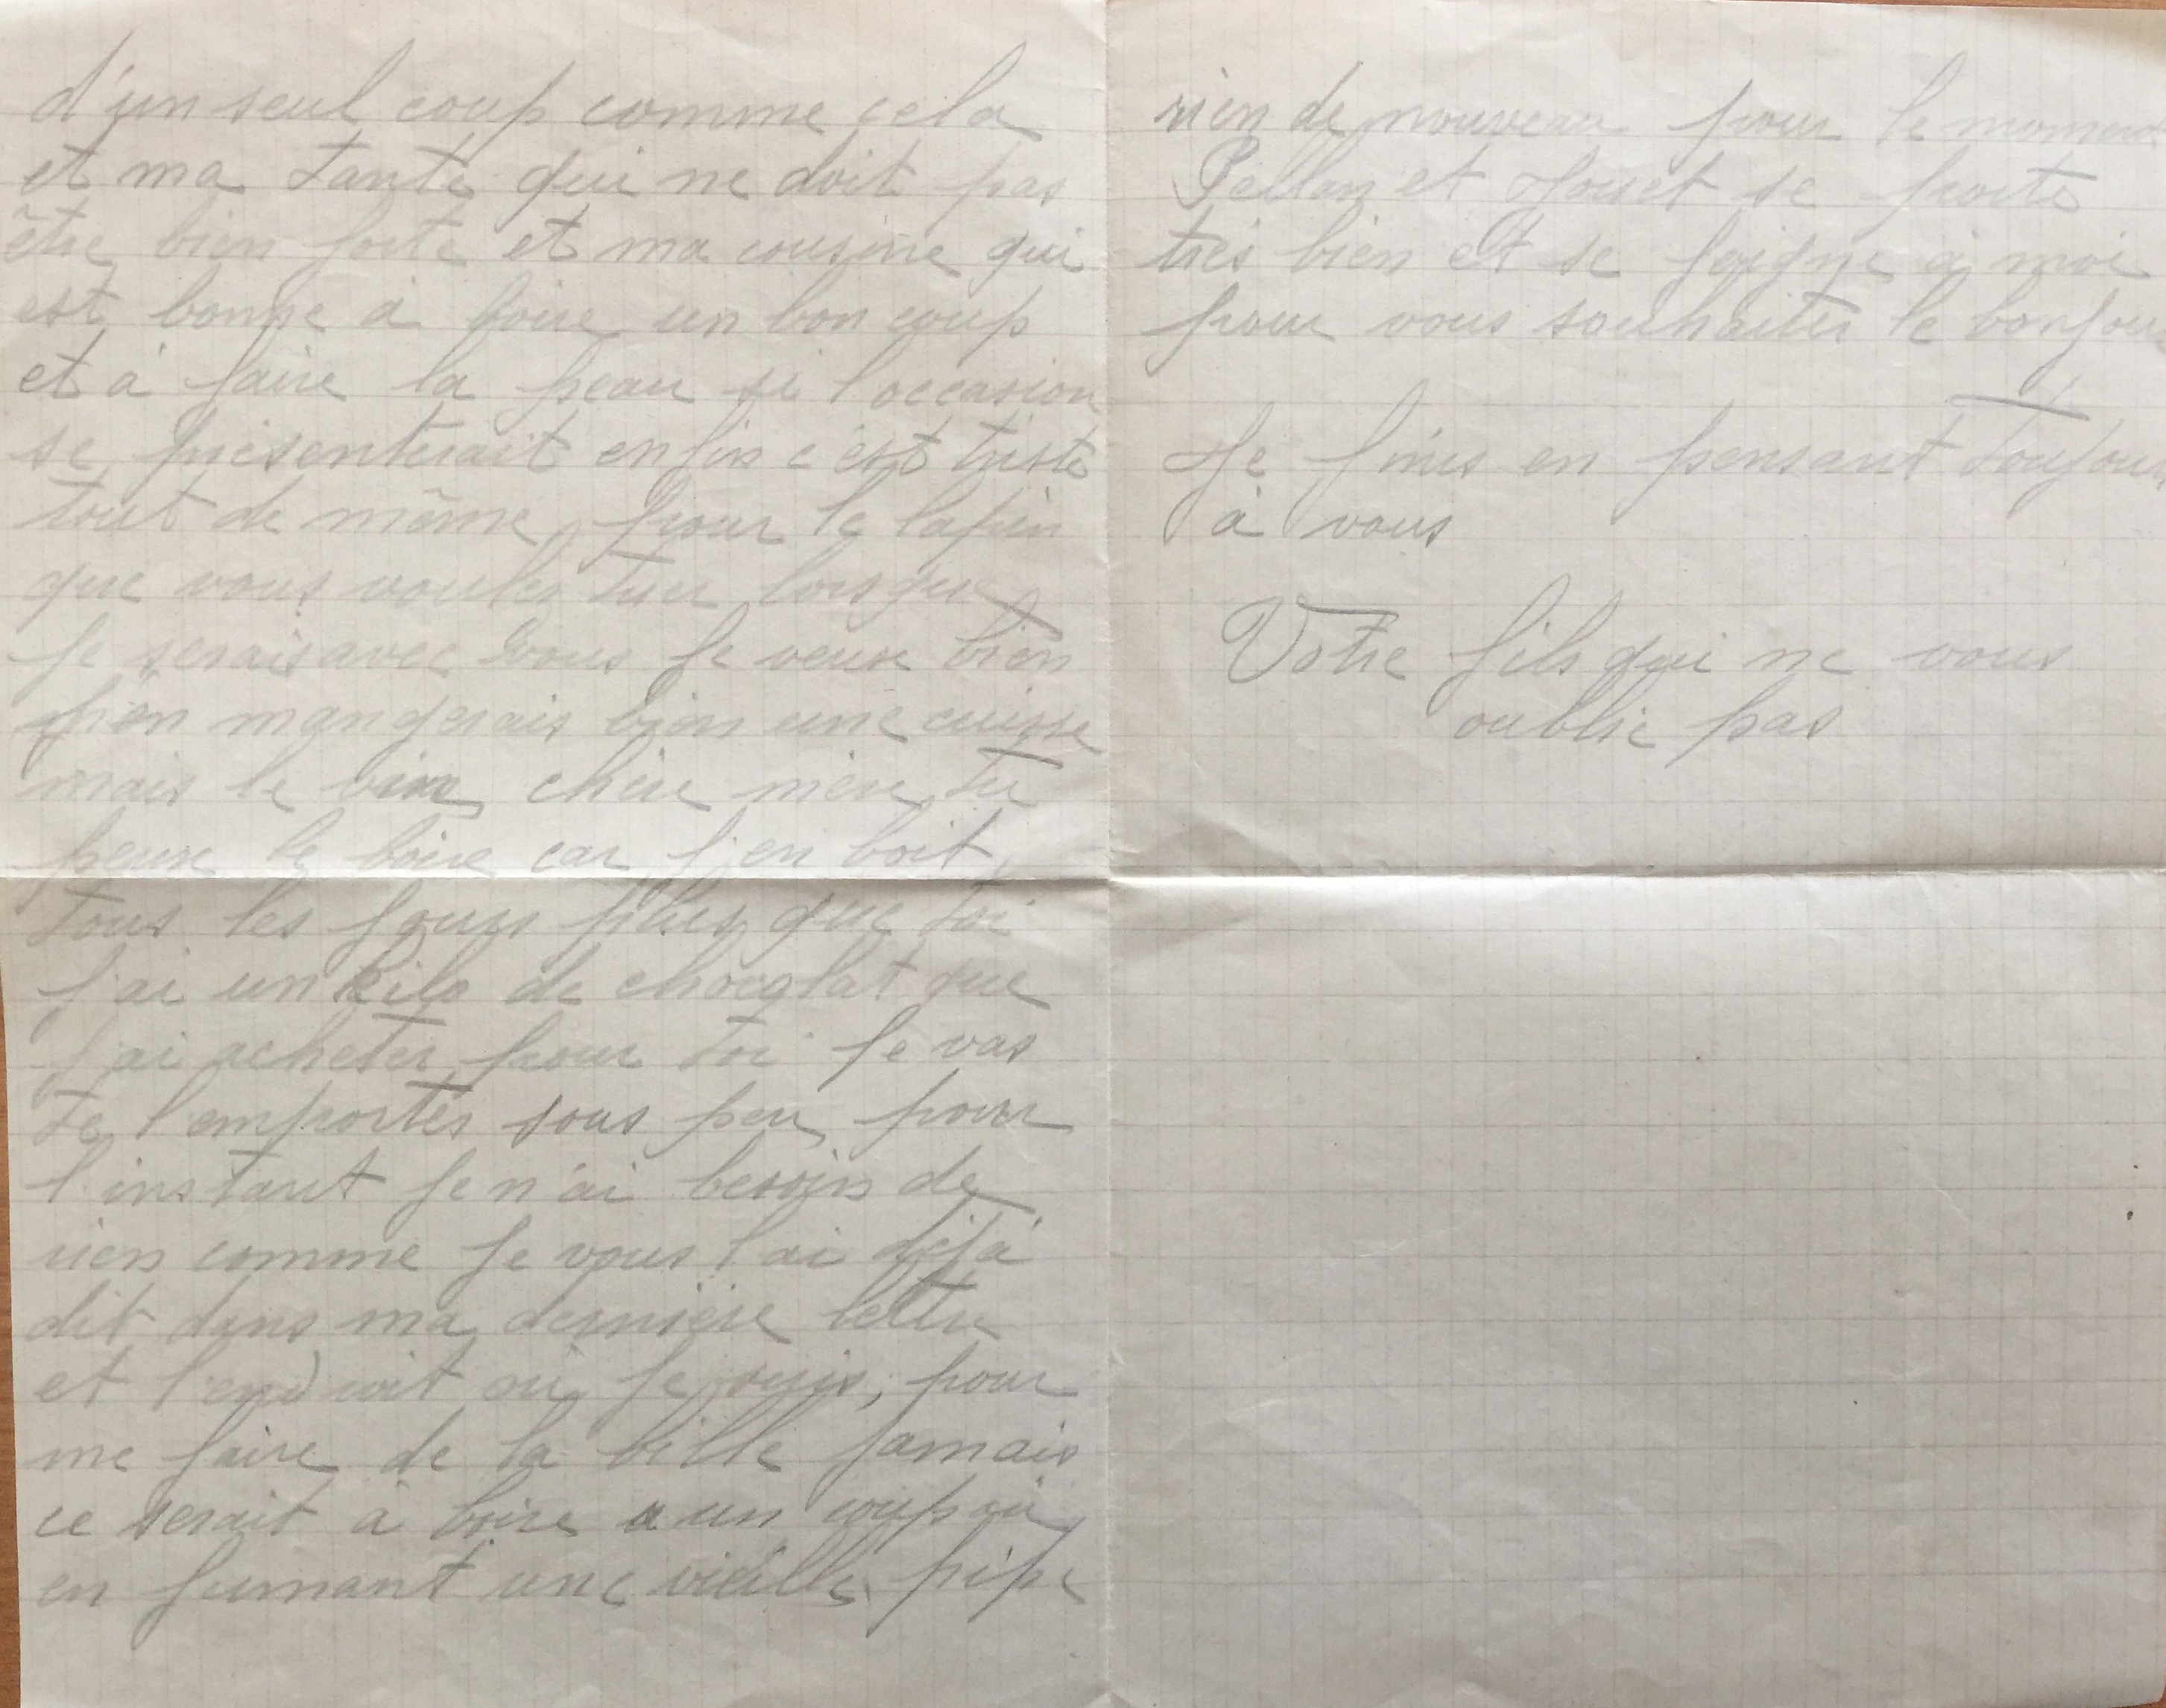 d'un seul coup comme cela
et ma tante qui ne doit pas
être bien forte et ma cousine qui
est bonne à boire un bon coup
et à faire la peau si l'occasion
se présenterait enfin c'est triste
tout de même, pour le lapin
que vous voulez tuer lorsque
je serais avec vous je veux bien
j'en mangerais bien une cuisse
mais le vin chère mère tu
peux le boire car j'en boit
tous les jours plus que toi
j'ai un kilo de chocolat que
j'ai acheter pour toi je vas
te l'emporter sous peu, pour
l'instant je n'ai besoin de
rien comme je vous l'ai déjà
dit dans ma dernière lettre
et l'endroit où je suis, pour
me faire de la bille jamais
ce serait à boire un coup où
en fumant une vieille pipe
rien de nouveau pour le moment
et se porte
très bien et se à moi
pour vous souhaiter le bonjour
Je finis en pensant toujours
à vous
Votre fils qui ne vous
oublie pas